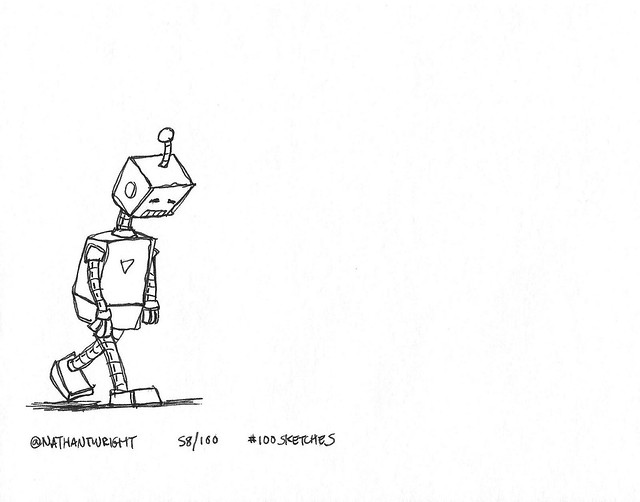 @NATHANTWRIGHT 58/100 #100SKETCHES